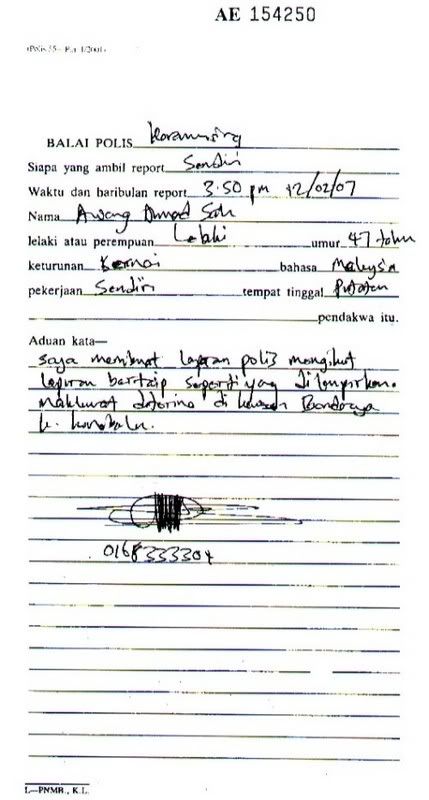 AE 154250
(Polis 55—Pin. 1/2001)
BALAI POLIS Karamunsing
Siapa yang ambil report Sendiri
Waktu dan haribulan report 3.50 pm 12/02/07
Nama Awang Ahmad Sah
lelaki atau perempuan Lelaki umur 47 tahun
keturunan bahasa Malaysia
pekerjaan Sendiri tempat tinggal Putatan
pendakwa itu.
Aduan kata—
saya membuat laporan polis mengikut
laporan bertaip seperti yang dilampirkan.
Maklumat diterima di kawasan Bandaraya
K. Kinabalu.
0168333304
L—PNMB., K.L.